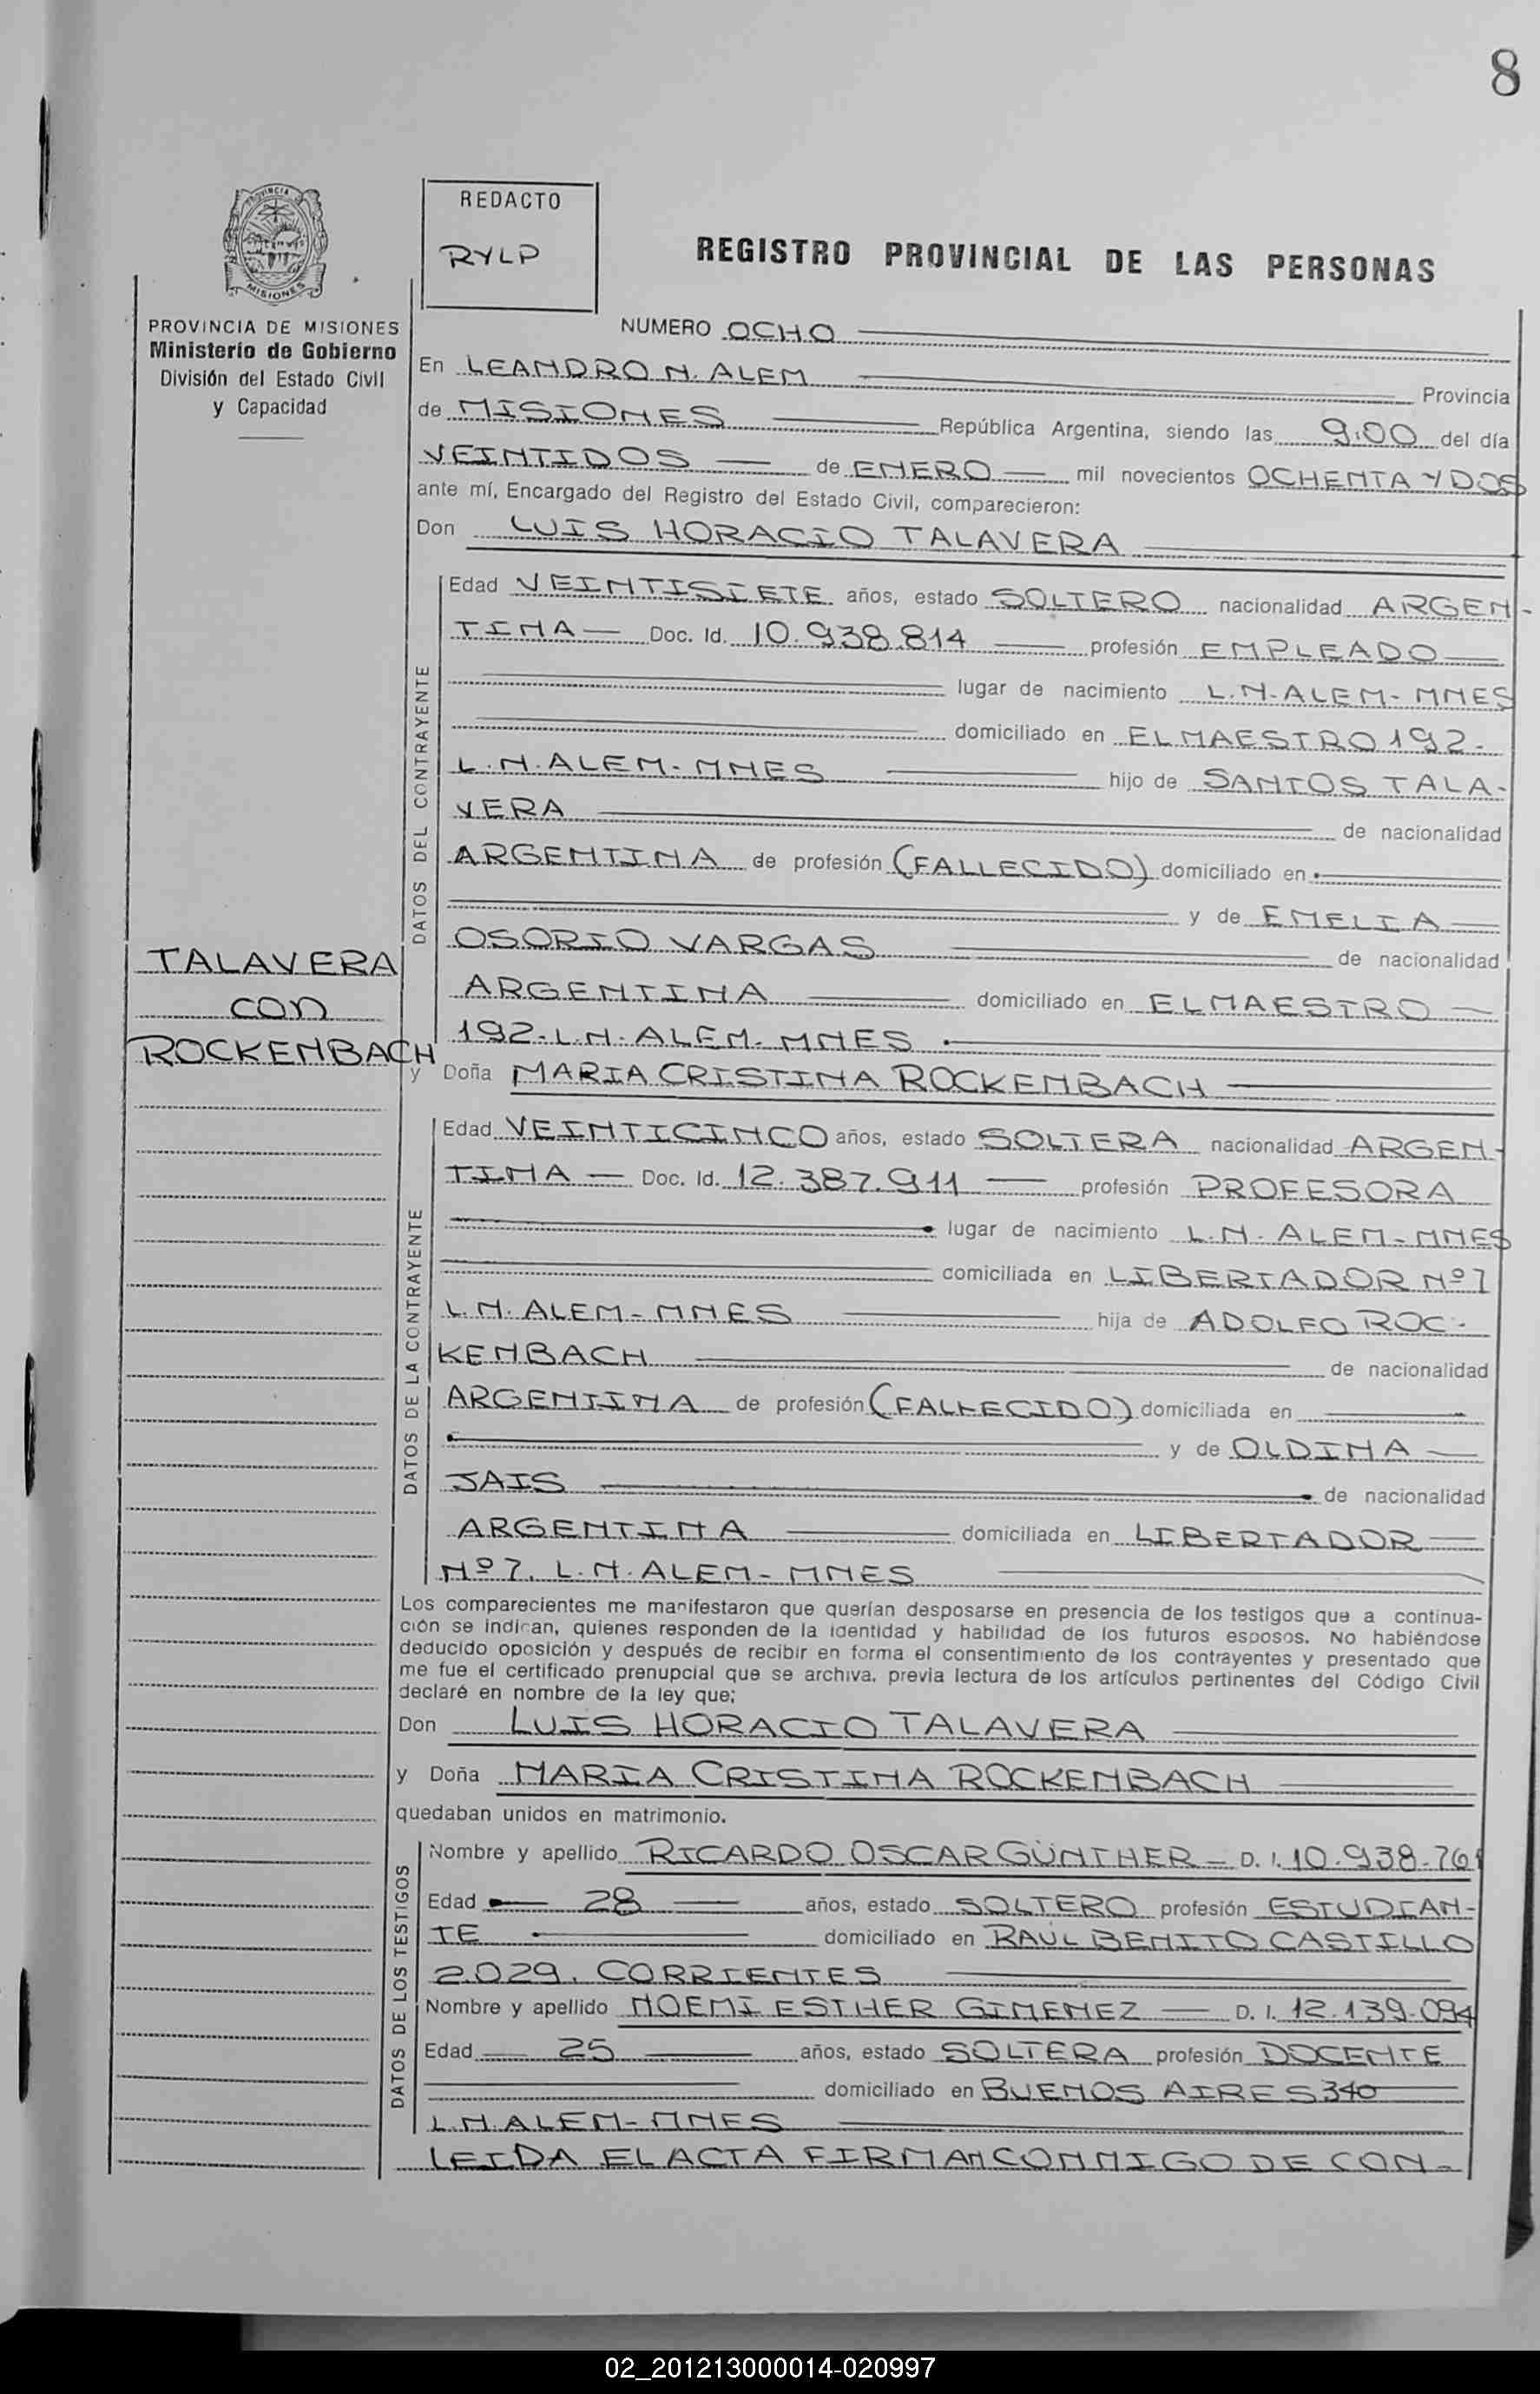 8
PROVINCIA
MISIONES
PROVINCIA DE MISIONES
Ministerio de Gobierno
División del Estado Civil
y Capacidad
REDACTO
RYLP
REGISTRO PROVINCIAL DE LAS PERSONAS
NUMERO OCHO
En LEANDRO N. ALEM Provincia
de MISIONES República Argentina, siendo las 9:00 del día
VEINTIDOS de ENERO mil novecientos OCHENTA Y DOS
ante mí, Encargado del Registro del Estado Civil, comparecieron:
Don LUIS HORACIO TALAVERA
DATOS DEL CONTRAYENTE
Edad VEINTISIETE años, estado SOLTERO nacionalidad ARGEN-
TINA Doc. Id. 10.938.814 profesión EMPLEADO
lugar de nacimiento L.N.ALEM-MNES
domiciliado en EL MAESTRO 192-
L.N.ALEM-MNES hijo de SANTOS TALA-
VERA de nacionalidad
ARGENTINA de profesión (FALLECIDO) domiciliado en
y de EMELIA
OSORIO VARGAS de nacionalidad
ARGENTINA domiciliado en EL MAESTRO
192-L.N.ALEM-MNES
TALAVERA
con
ROCKENBACH
y Doña MARIA CRISTINA ROCKENBACH
DATOS DE LA CONTRAYENTE
Edad VEINTICINCO años, estado SOLTERA nacionalidad ARGEN-
TINA Doc. Id. 12.387.911 profesión PROFESORA
lugar de nacimiento L.N. ALEM-MNES
domiciliada en LIBERTADOR Nº7
L.N.ALEM-MNES hija de ADOLFO ROC-
KENBACH de nacionalidad
ARGENTINA de profesión (FALLECIDO) domiciliada en
y de OLDINA
JAIS de nacionalidad
ARGENTINA domiciliada en LIBERTADOR
Nº7. L.N.ALEM-MNES
Los comparecientes me manifestaron que querían desposarse en presencia de los testigos que a continua-
ción se indican, quienes responden de la identidad y habilidad de los futuros esposos. No habiéndose
deducido oposición y después de recibir en forma el consentimiento de los contrayentes y presentado que
me fue el certificado prenupcial que se archiva, previa lectura de los artículos pertinentes del Código Civil
declaré en nombre de la ley que;
Don LUIS HORACIO TALAVERA
y Doña MARIA CRISTINA ROCKENBACH
quedaban unidos en matrimonio.
DATOS DE LOS TESTIGOS
Nombre y apellido RICARDO OSCAR GÜNTHER D. I. 10.938.761
Edad 28 años, estado SOLTERO profesión ESTUDIAN-
TE domiciliado en RAUL BENITO CASTILLO
2029. CORRIENTES
Nombre y apellido NOEMI ESTHER GIMENEZ D. I. 12.139.094
Edad 25 años, estado SOLTERA profesión DOCENTE
domiciliado en BUENOS AIRES 340
L.N.ALEM-MNES
LEIDA EL ACTA FIRMAN CONMIGO DE CON-
02_201213000014-020997